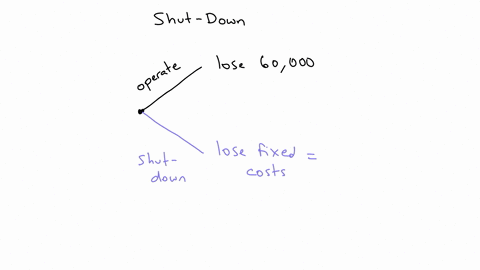 Shut-Down
operate
lose 60,000
shut-
down
lose fixed =
costs